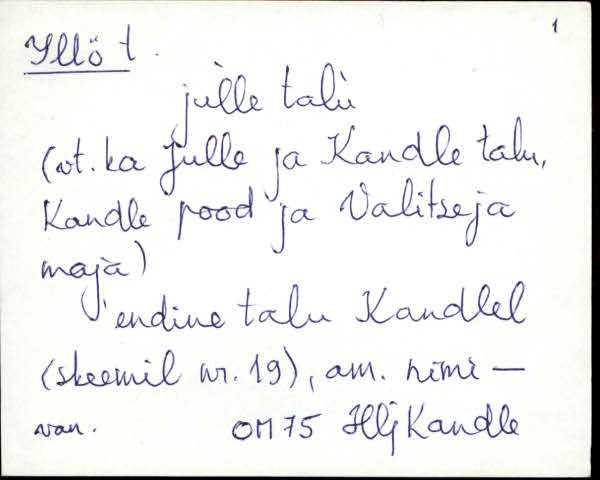 1
Yllö t.
jùlle talù
(vt. ka Julle ja Kandle talu,
Kandle pood ja Valitseja
maja)
endine talu Kandlel
(skeemil nr. 19), am. nimi —
van. OM 75 Hlj Kandle